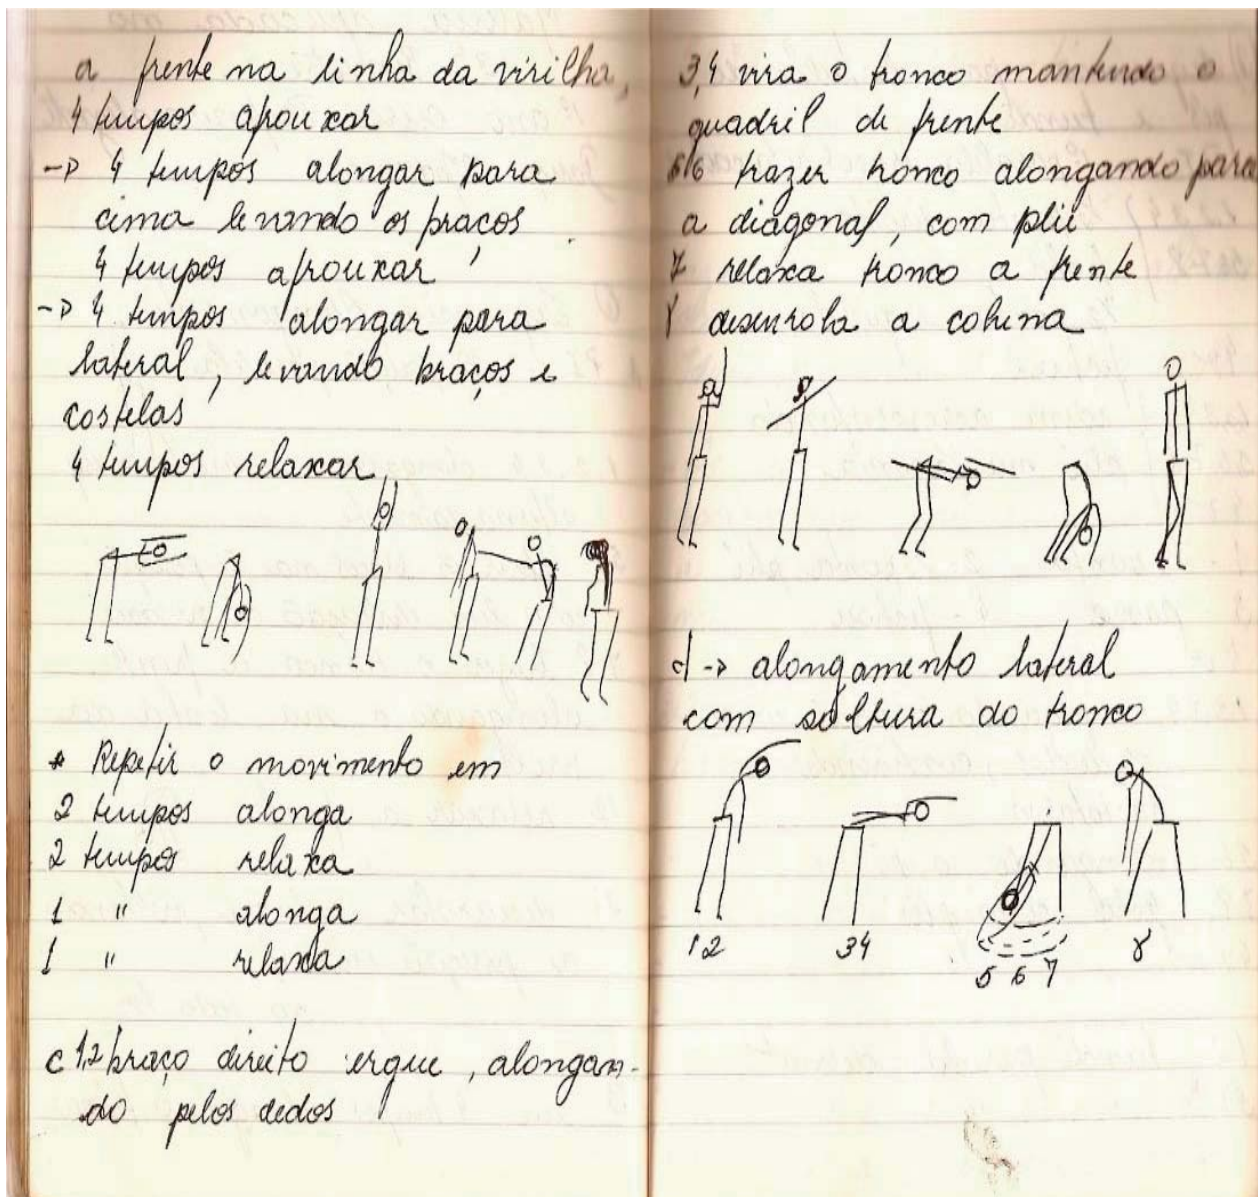 a frente na linha da virilha,
4 tempos afrouxar
-> 4 tempos alongar para
cima levando os braços
4 tempos afrouxar
-> 4 tempos alongar para
lateral, levando braços e
costelas
4 tempos relaxar
* Repetir o movimento em
2 tempos alonga
2 tempos relaxa
1 " alonga
1 " relaxa
c 1,2 braço direito ergue, alongan-
do pelos dedos
3,4 vira o tronco mantendo o
quadril de frente
5,6 trazer tronco alongando para
a diagonal, com pliè
7 relaxa tronco a frente
8 desenrola a coluna
d -> alongamento lateral
com soltura do tronco
1 2 34 5 6 7 8